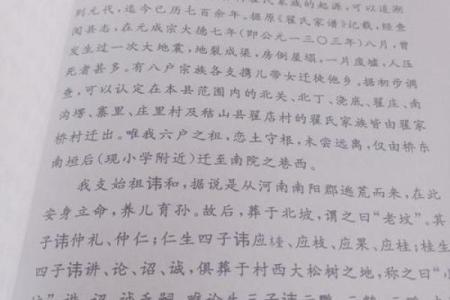 到元代，迄今已历七百余年。据原《翟氏家谱》记载，经查
阅县志，在元成宗大德七年（即公元一三〇三年）八月，曾
发生过一次大地震，地裂成渠，房倒屋塌，一片废墟，人压
死者甚多。有八户宗族各支携儿带女迁徙他乡，据初步调
查，可以认定在本县范围内的北关、北丁、浇底、翟庄、南
沟塄、寨里、庄里村及嵇山县翟店村的翟氏家族皆由翟家
桥村迁出。唯我六户之祖，恋土守根，未尝远离，仅由桥东
南垣后（现小学附近）迁至南院之巷西。
我支始祖讳和，据说是从河南南阳郡逃荒而来，在此
安身立命，养儿育孙。故后，葬于北坡，谓之曰“老坟”。其
子讳仲礼、仲仁；仁生四子讳应槿、应枝、应果、应桂；桂生
四子讳讲、论、诏、诚，俱葬于村西大松树之地，称之曰“小